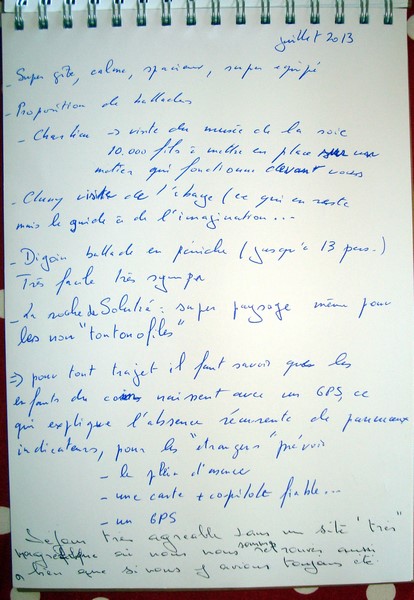 juillet 2013
- Super gîte, calme, spacieux, super équipé
- Proposition de ballades
- Charlieu → visite du musée de la soie
10.000 fils à mettre en place sur un
métier qui fonctionne devant vous
- Cluny visite de l'abbaye (ce qui en reste
mais le guide a de l'imagination...
- Digoin ballade en péniche (jusqu'à 13 pers.)
Très facile très sympa
- La roche de Solutré : super paysage même pour
les non "tontonofiles"
⇒ pour tout trajet il faut savoir que les
enfants du coin naissent avec un GPS, ce
qui explique l'absence récurrente de panneaux
indicateurs, pour les "étrangers" prévoir
- le plein d'essence
- une carte + copilote fiable...
- un GPS
Séjour très agréable dans un site "très"
magnifique où nous nous sommes retrouvés aussi
bien que si nous y avions toujours été.